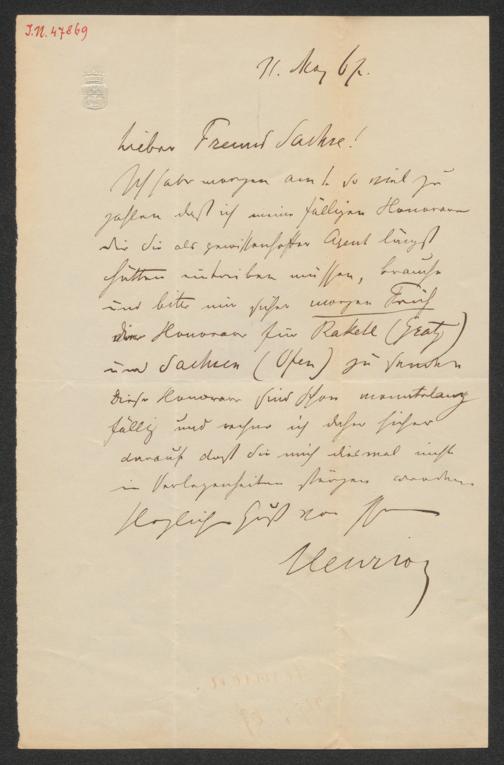 I.N. 47869
11. May 67.
Lieber Freund Sachse!
Ich habe morgen am 1. so viel zu
zahlen daß ich meine fälligen Honorare
die Sie als gewissenhafter Agent längst
hätten eintreiben müssen, brauche
und bitte mir sicher morgen Früh
die Honorare für Rakete (Gratz)
und Sachsen (Ofen) zu senden
Diese Honorare sind schon monatelang
fällig und rechne ich daher sicher
darauf daß Sie mich diesmal nicht
in Verlegenheiten stürzen werden.
Herzlich Gruß von Ihrem
Henrion